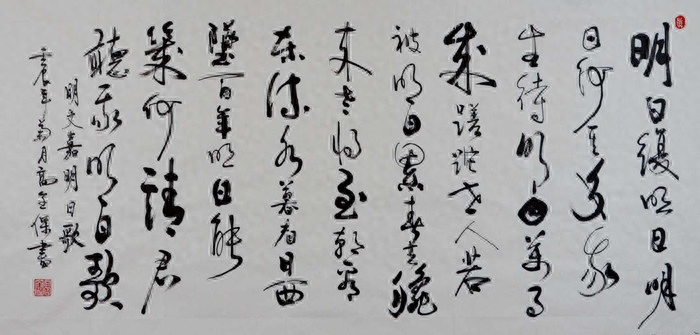 明日復明日明
日何其多我
生待明日萬事
成蹉跎世人若
被明日累春去秋
来老将至朝看
东流水暮看日西
墜百年明日能
幾何請君
聽我明日歌
明文嘉明日歌
辰年菊月高金保書